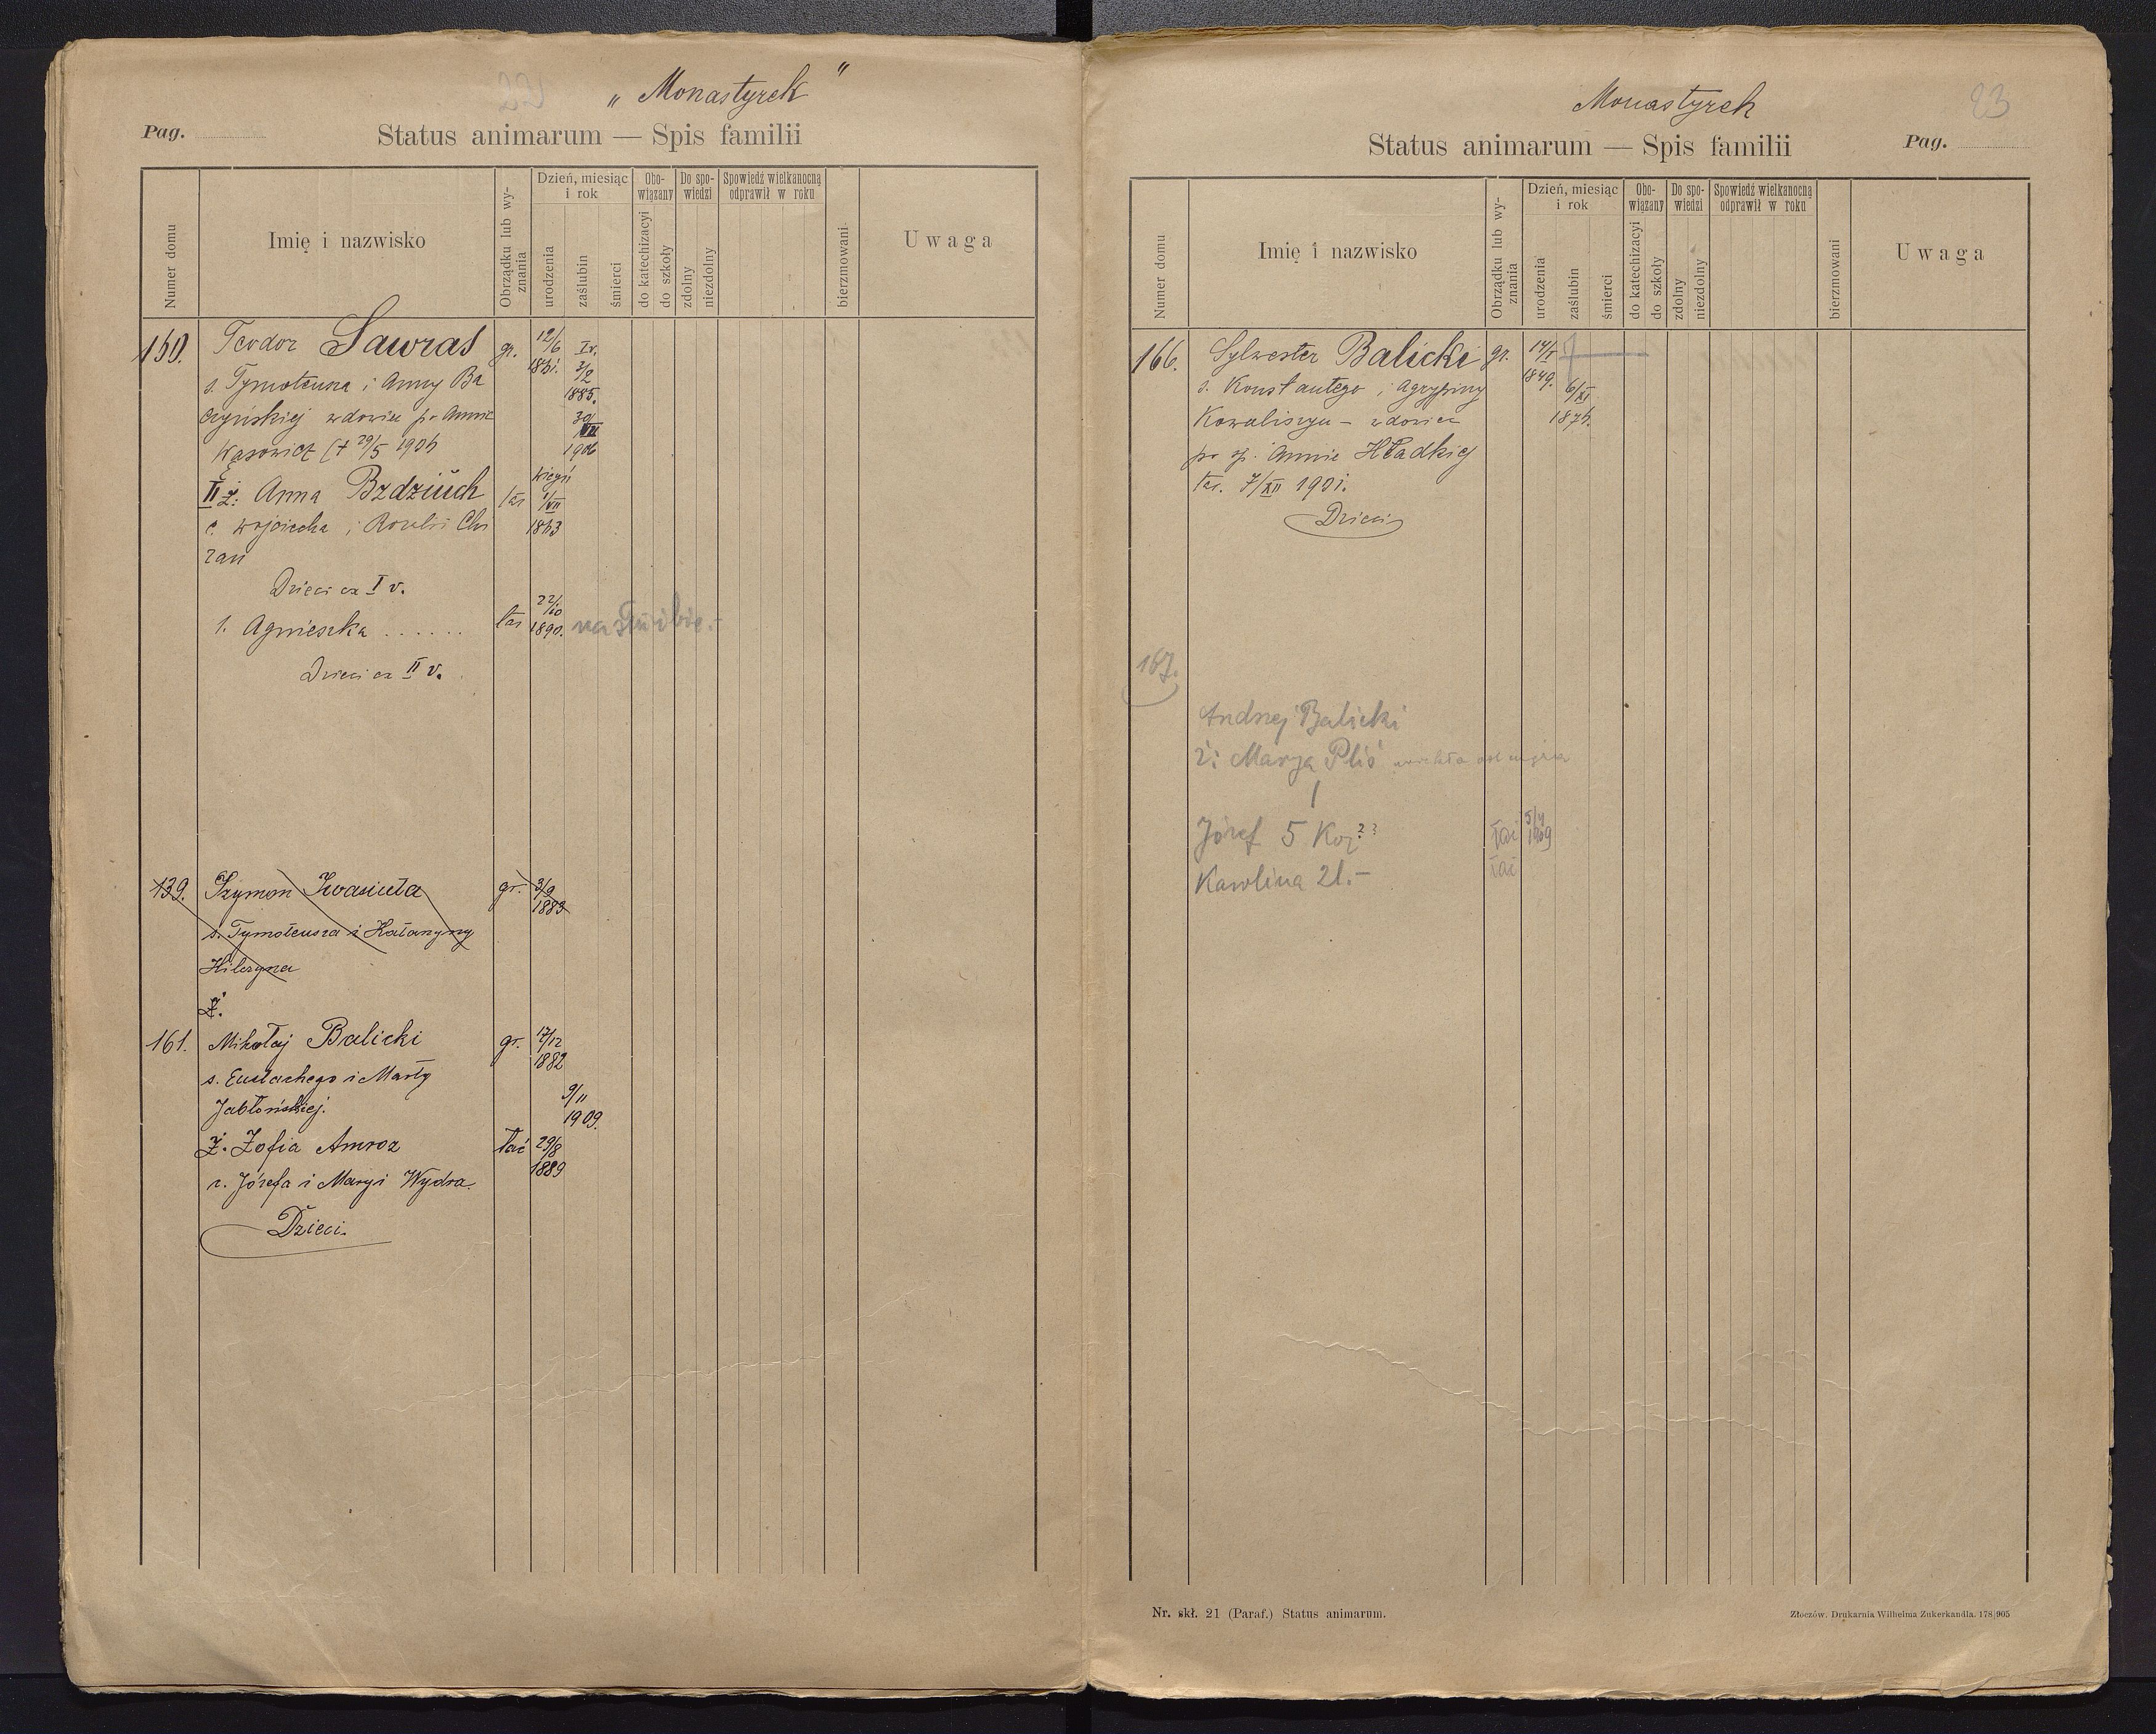 22
„ Monastyrek "
Pag.
Status animarum — Spis familii
Numer domu
Imię i nazwisko
Obrządku lub wy-
znania
Dzień, miesiąc
i rok
urodzenia
zaślubin
śmierci
Obo-
wiązany
do katechizacyi
do szkoły
Do spo-
wiedzi
zdolny
niezdolny
Spowiedź wielkanocną
odprawił w roku
bierzmowani
Uwaga
150. Teodor Sawras gr. 12/6 Iv.
s. Tymoteusza i Anny Ba 3/2
1885.
czyńskiej wdowiec po Annie 30/VII
Wąsowicz († 29/5 190 1906
II ż. Anna Bzdziuch łać 1/VII
c. Wojciecha i Rozalii Chr
zan
Dzieci ex I v.
1. Agnieszka . . . . . . łać 22/10 1890. na służbie.-
Dzieci ex II v.
139. Szymon Iwasiuta gr. 3/9
1883
s. Tymoteusza i Katarzyny
Hilczyna
Ż.
161. Mikołaj Balicki gr. 17/12
1882
s. Eustachego i Marty
Jabłońskiej. 9/11
1909.
Ż. Zofia Amroz łać 29/8
1889
c. Józefa i Maryi Wydra.
Dzieci.
Monastyrek
23
Status animarum — Spis familii
Pag.
Numer domu
Imię i nazwisko
Obrządku lub wy-
znania
Dzień, miesiąc
i rok
urodzenia
zaślubin
śmierci
Obo-
wiązany
do katechizacyi
do szkoły
Do spo-
wiedzi
zdolny
niezdolny
Spowiedź wielkanocną
odprawił w roku
bierzmowani
Uwaga
166. Sylwester Balicki gr. 14/I
1849.
s. Konstantego i Agrypiny 6/XI
Kowaliszyn – wdowiec
po śp. Annie Hładkiej
7/XII 1901.
Dzieci
167.
Andrzej Balicki
ż: Marya Pliś
Józef 5 łać 5/4 1909
Karolina 2l.- łać
Nr. skł. 21 (Paraf.) Status animarum.
Złoczów. Drukarnia Wilhelma Zukerkandla. 178|905